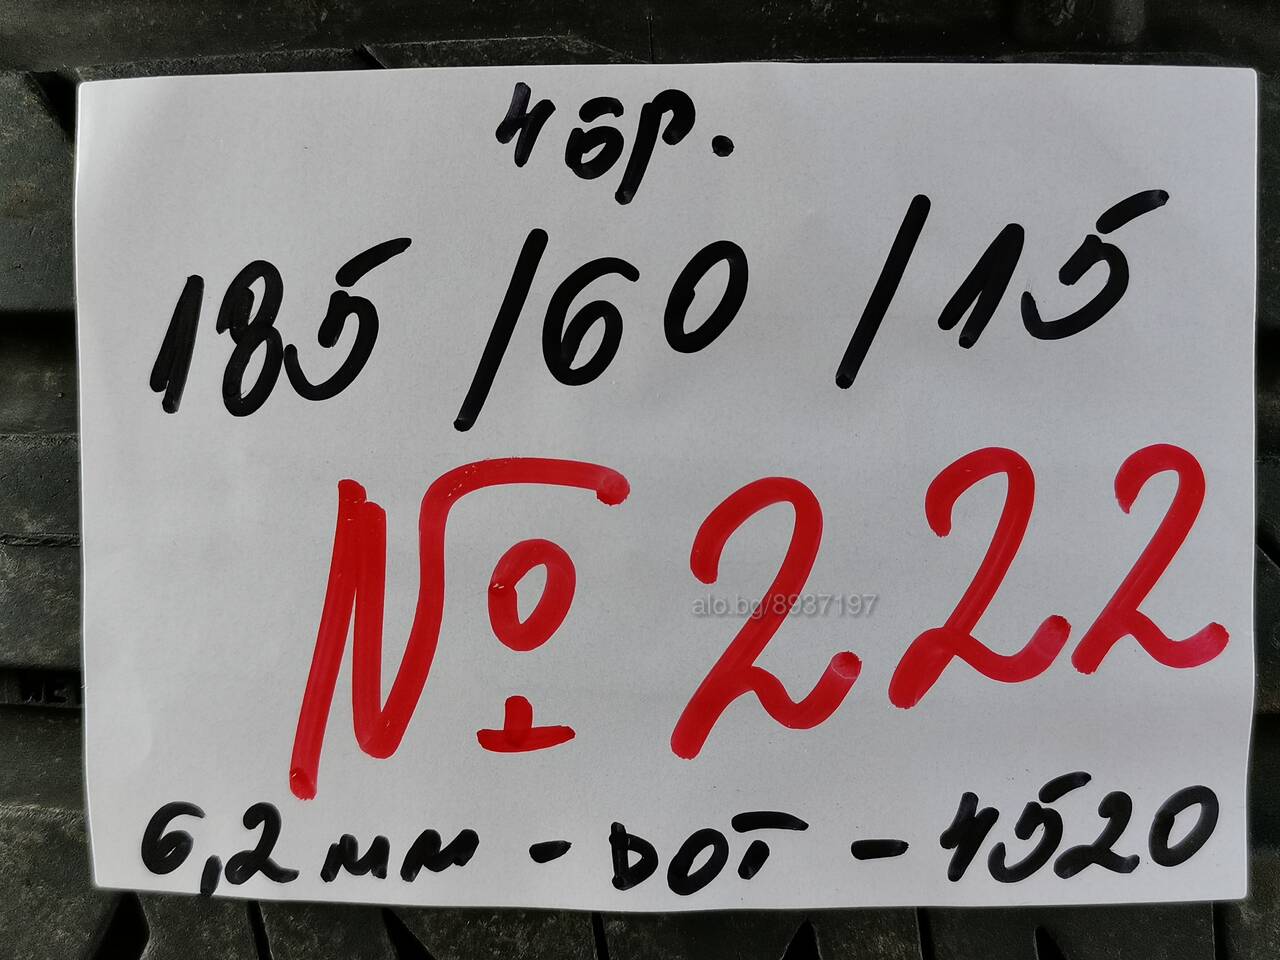 4бр.
185/60/15
№ 222
alo.bg/8937197
6,2мм - DOT - 4520